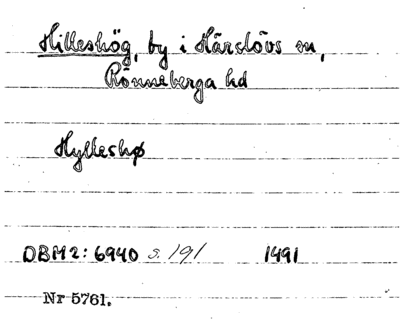 Hilleshög, by i Härslövs sn,
Rönneberga hd
Hylleshø
DBM2: 6940 s. 191 1491
Nr 5761.